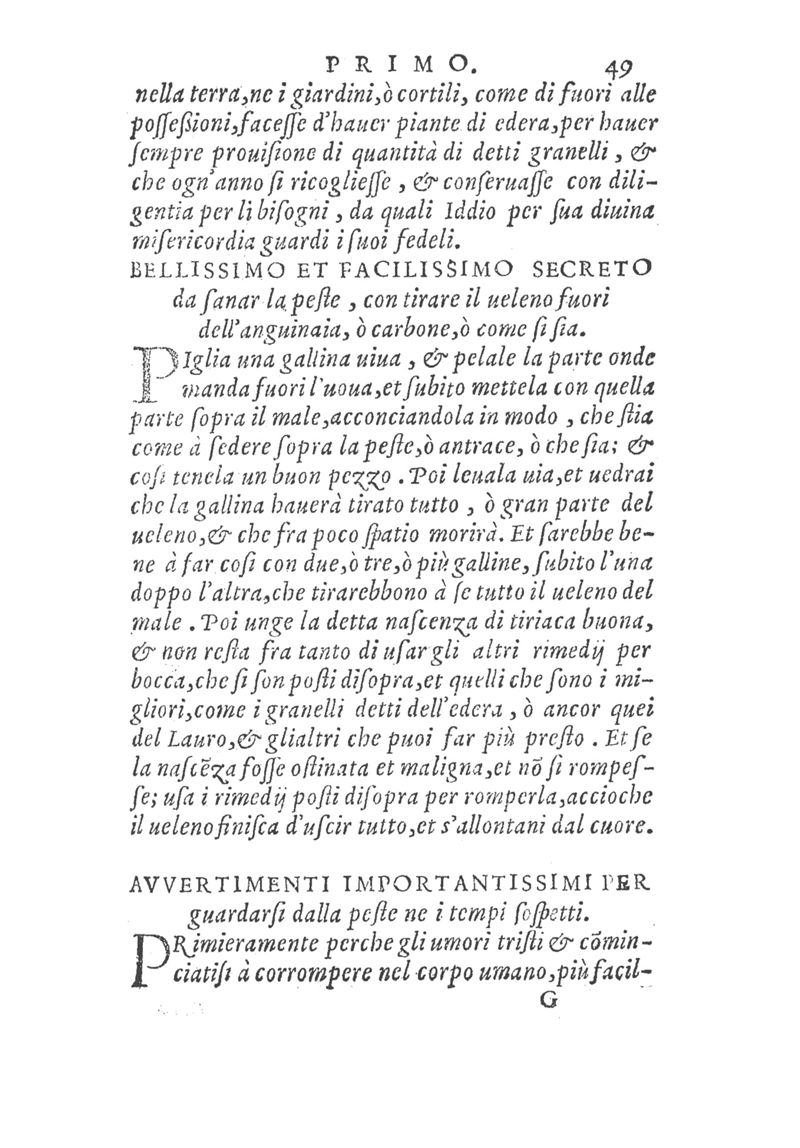 PRIMO. 49
nella terra,ne i giardini,ò cortili, come di fuori alle
poſſeßioni,faceſſe d'hauer piante di edera,per hauer
ſempre prouiſione di quantità di detti granelli , &
che ogn'anno ſi ricoglieſſe , & conſeruaſſe con dili-
gentia per li biſogni , da quali Iddio per ſua diuina
miſericordia guardi i ſuoi fedeli.
BELLISSIMO ET FACILISSIMO SECRETO
da ſanar la peſte , con tirare il ueleno fuori
dell'anguinaia, ò carbone,ò come ſi ſia.
PIglia una gallina uiua , & pelale la parte onde
manda fuori l'uoua,et ſubito mettela con quella
parte ſopra il male,acconciandola in modo , che ſtia
come à ſedere ſopra la peſte,ò antrace, ò che ſia; &
coſi tenela un buon pezzo . Poi leuala uia,et uedrai
che la gallina hauerà tirato tutto , ò gran parte del
ueleno,& che fra poco ſpatio morirà. Et ſarebbe be-
ne à far coſi con due,ò tre,ò più galline, ſubito l'una
doppo l'altra,che tirarebbono à ſe tutto il ueleno del
male . Poi unge la detta naſcenza di tiriaca buona,
& non reſta fra tanto di uſar gli altri rimedij per
bocca,che ſi ſon poſti diſopra,et quelli che ſono i mi-
gliori,come i granelli detti dell'edera , ò ancor quei
del Lauro,& glialtri che puoi far più preſto . Et ſe
la naſcẽza foſſe oſtinata et maligna,et nõ ſi rompeſ-
ſe; uſa i rimedij poſti diſopra per romperla,accioche
il ueleno finiſca d'uſcir tutto,et s'allontani dal cuore.
AVVERTIMENTI IMPORTANTISSIMI PER
guardarſi dalla peſte ne i tempi ſoſpetti.
PRimieramente perche gli umori triſti & cõmin-
ciatiſi à corrompere nel corpo umano,più facil-
G